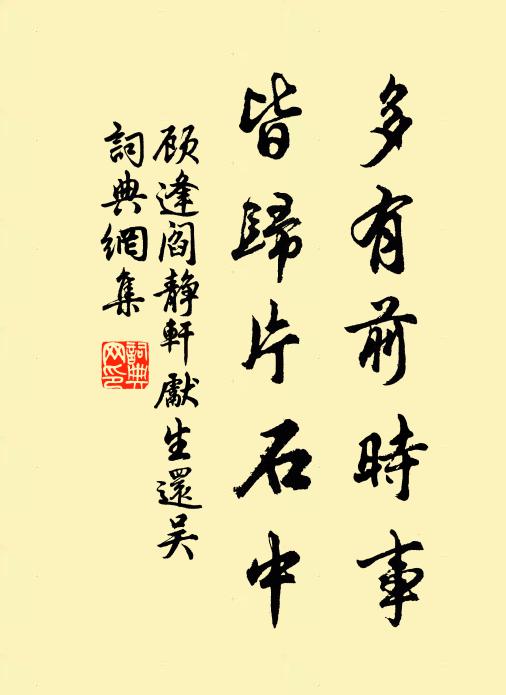 多有前時事
皆歸片石中
顾逢阎靜軒獻生還吴
詞典網集
詞典网印